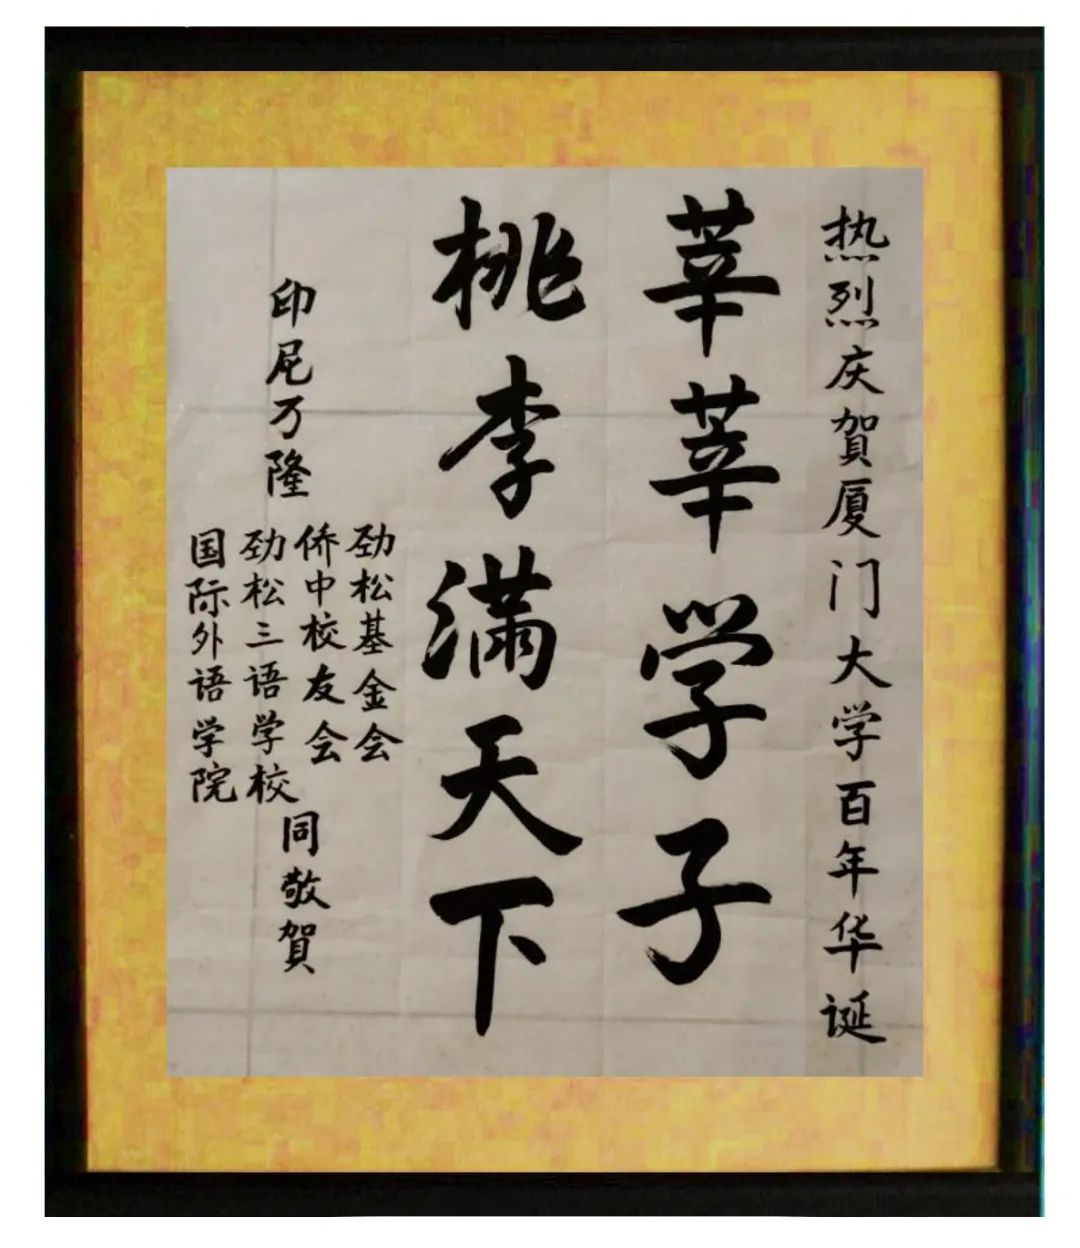 热烈庆賀厦门大学百年华诞
莘莘学子
桃李满天下
印尼万隆
劲松基金会
侨中校友会
劲松三语学校
国际外语学院
同敬賀